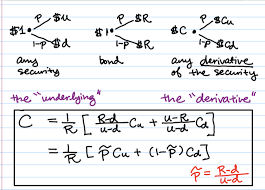 p $u p $R p $Cu
$1 $1 $C
1-p $d 1-p $R 1-p $Cd
any security bond any derivative of the security
the "underlying" the "derivative"
C = 1/R [ R-d/u-d Cu + u-R/u-d Cd ]
= 1/R [ p̃ Cu + (1-p̃) Cd ]
p̃ = R-d/u-d